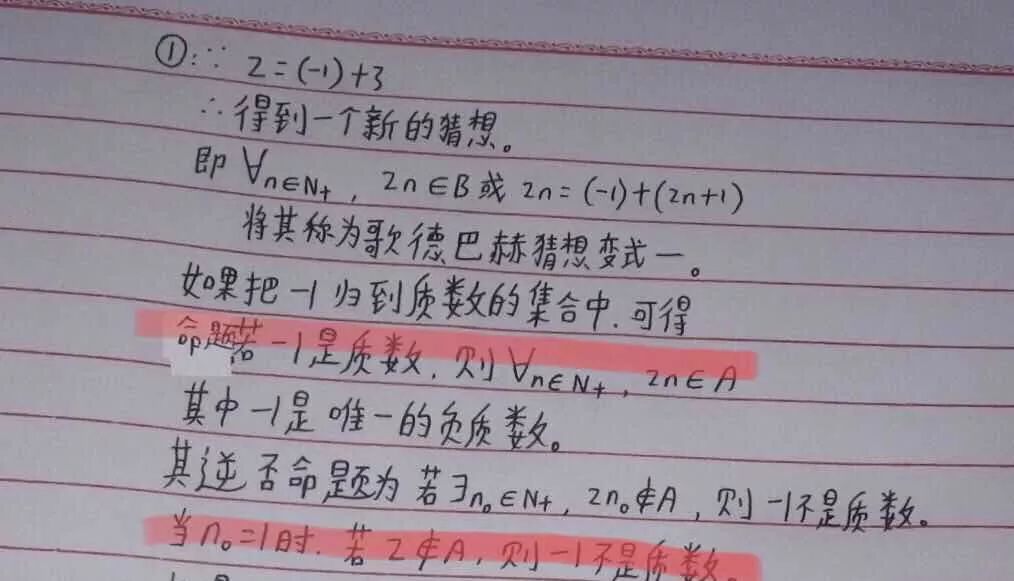 ①:∵ 2=(-1)+3
∴得到一个新的猜想。
即 ∀n∈N+, 2n∈B或 2n=(-1)+(2n+1)
将其称为歌德巴赫猜想变式一。
如果把-1归到质数的集合中.可得
命题若-1是质数,则∀n∈N+, 2n∈A
其中-1是唯一的负质数。
其逆否命题为 若∃n₀∈N+, 2n₀∉A,则-1不是质数。
当n₀=1时.若2∉A,则-1不是质数.